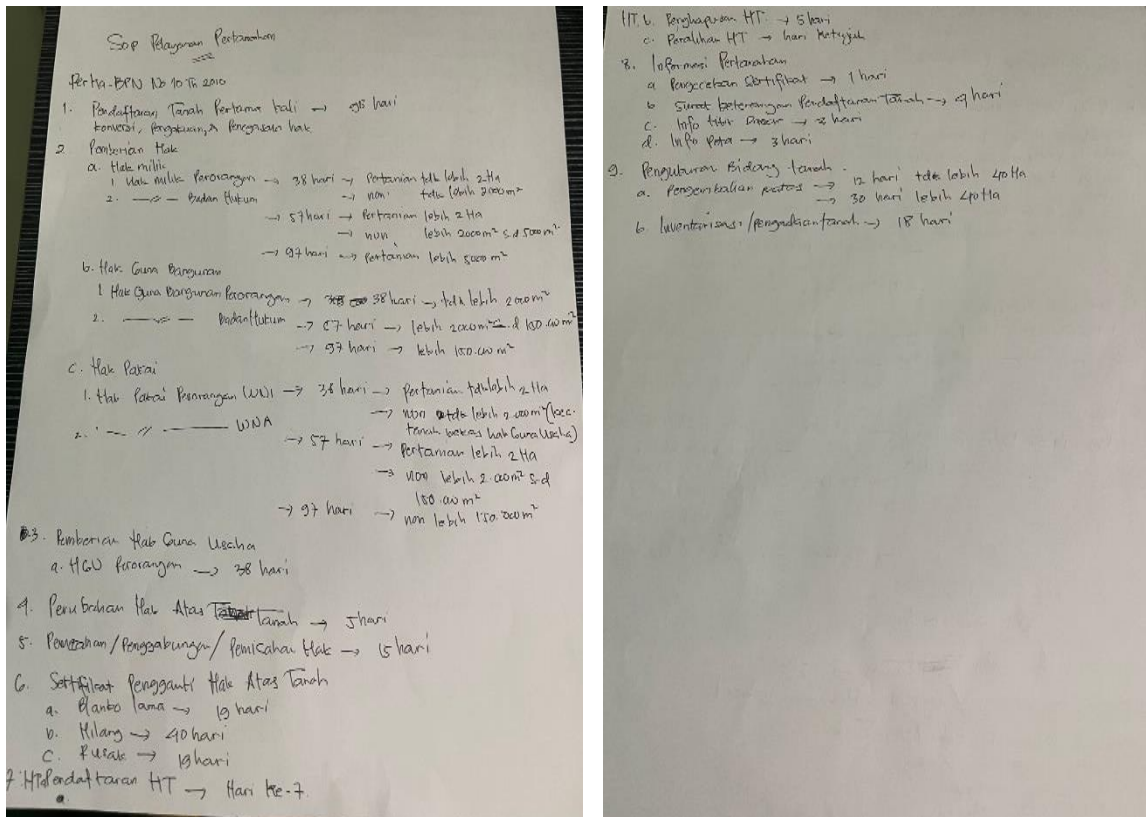 Sop Pelayanan Pertanahan
Perka-BPN No 10 Th 2010
1. Pendaftaran Tanah Pertama kali → 98 hari
konversi, pengakuan, & Penegasan hak
2 Pemberian Hak
a. Hak milik
1 Hak milik Perorangan → 38 hari → Pertanian tdk lebih 2 Ha
2. —〃— Badan Hukum → non tdk lebih 2000 m²
→ 57 hari → Pertanian lebih 2 Ha
→ non lebih 2000 m² s.d 5000 m²
→ 97 hari → Pertanian lebih 5000 m²
b. Hak Guna Bangunan
1 Hak Guna Bangunan Perorangan → 38 hari → tdk lebih 2000 m²
2. —〃— Badan Hukum → 57 hari → lebih 2000 m² s.d 150.000 m²
→ 97 hari → lebih 150.000 m²
c. Hak Pakai
1. Hak Pakai Perorangan WNI → 38 hari → Pertanian tdk lebih 2 Ha
→ non tdk lebih 2.000 m² (kec.
2. —〃— WNA tanah bekas hak Guna Usaha)
→ 57 hari → Pertanian lebih 2 Ha
→ non lebih 2.000 m² s.d
150.000 m²
→ 97 hari → non lebih 150.000 m²
3. Pemberian Hak Guna Usaha
a. HGU Perorangan → 38 hari
4. Perubahan Hak Atas Tanah → 5 hari
5. Pemecahan/Penggabungan/Pemisahan Hak → 15 hari
6. Sertifikat Pengganti Hak Atas Tanah
a. Blanko lama → 19 hari
b. Hilang → 40 hari
c. Rusak → 19 hari
7. HT Pendaftaran HT → Hari ke-7.
a.
HT. b. Penghapusan HT. → 5 hari
c. Peralihan HT → hari ketujuh
8. Informasi Pertanahan
a Pengecekan Sertifikat → 1 hari
b Surat keterangan Pendaftaran Tanah → 4 hari
c. Info → 2 hari
d. Info Peta → 3 hari
9. Pengukuran Bidang tanah.
a. Pengembalian batas → 12 hari tdk lebih 40 Ha
→ 30 hari lebih 40 Ha
b Inventarisasi/pengadaan tanah → 18 hari